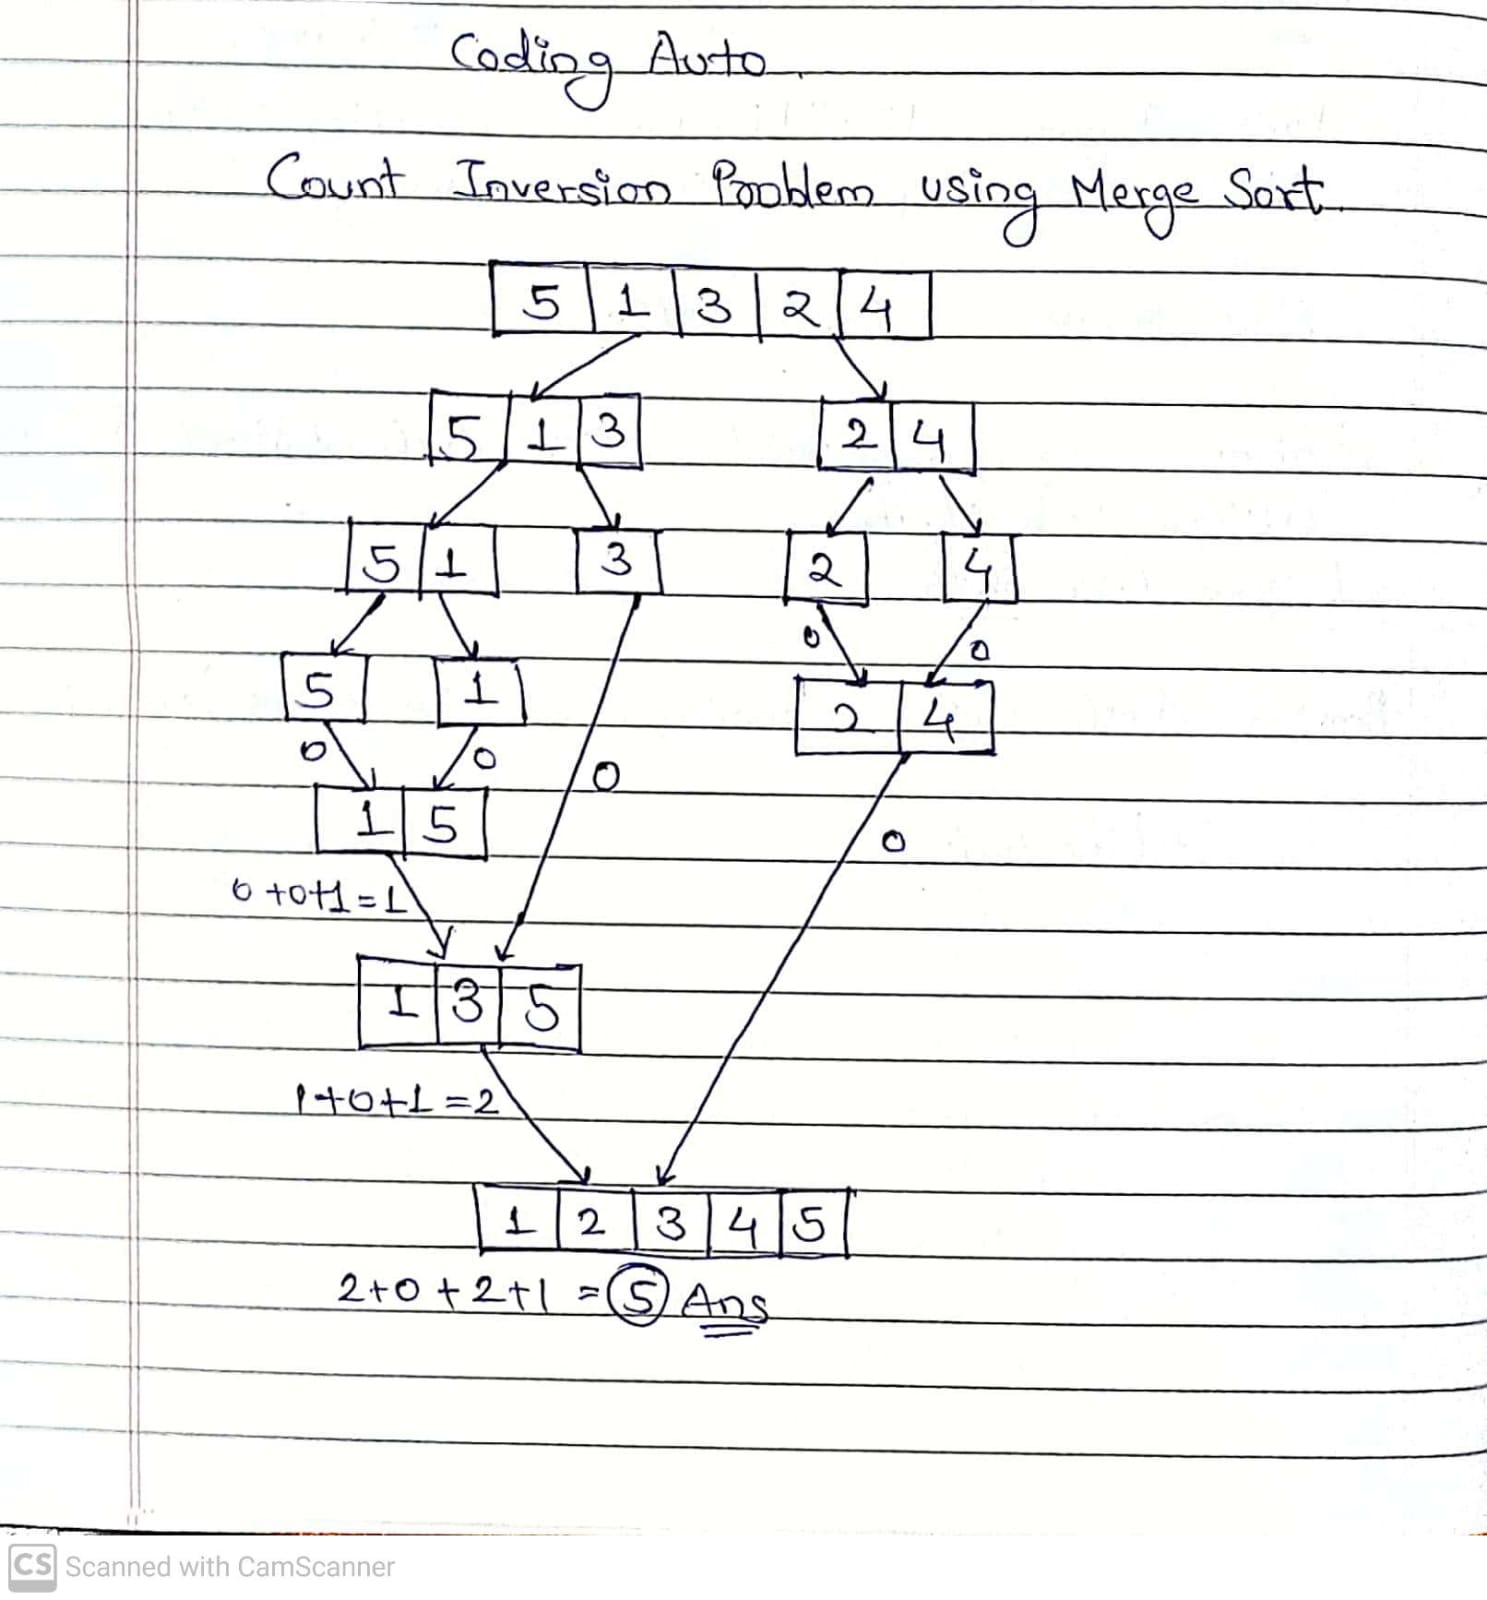 Coding Auto.
Count Inversion Problem using Merge Sort.
5 1 3 2 4
5 1 3 2 4
5 1 3 2 4
0 0
5 1 2 4
0 0 0
1 5 0
0+0+1=1
1 3 5
1+0+1=2
1 2 3 4 5
2+0+2+1=5 Ans
CS Scanned with CamScanner